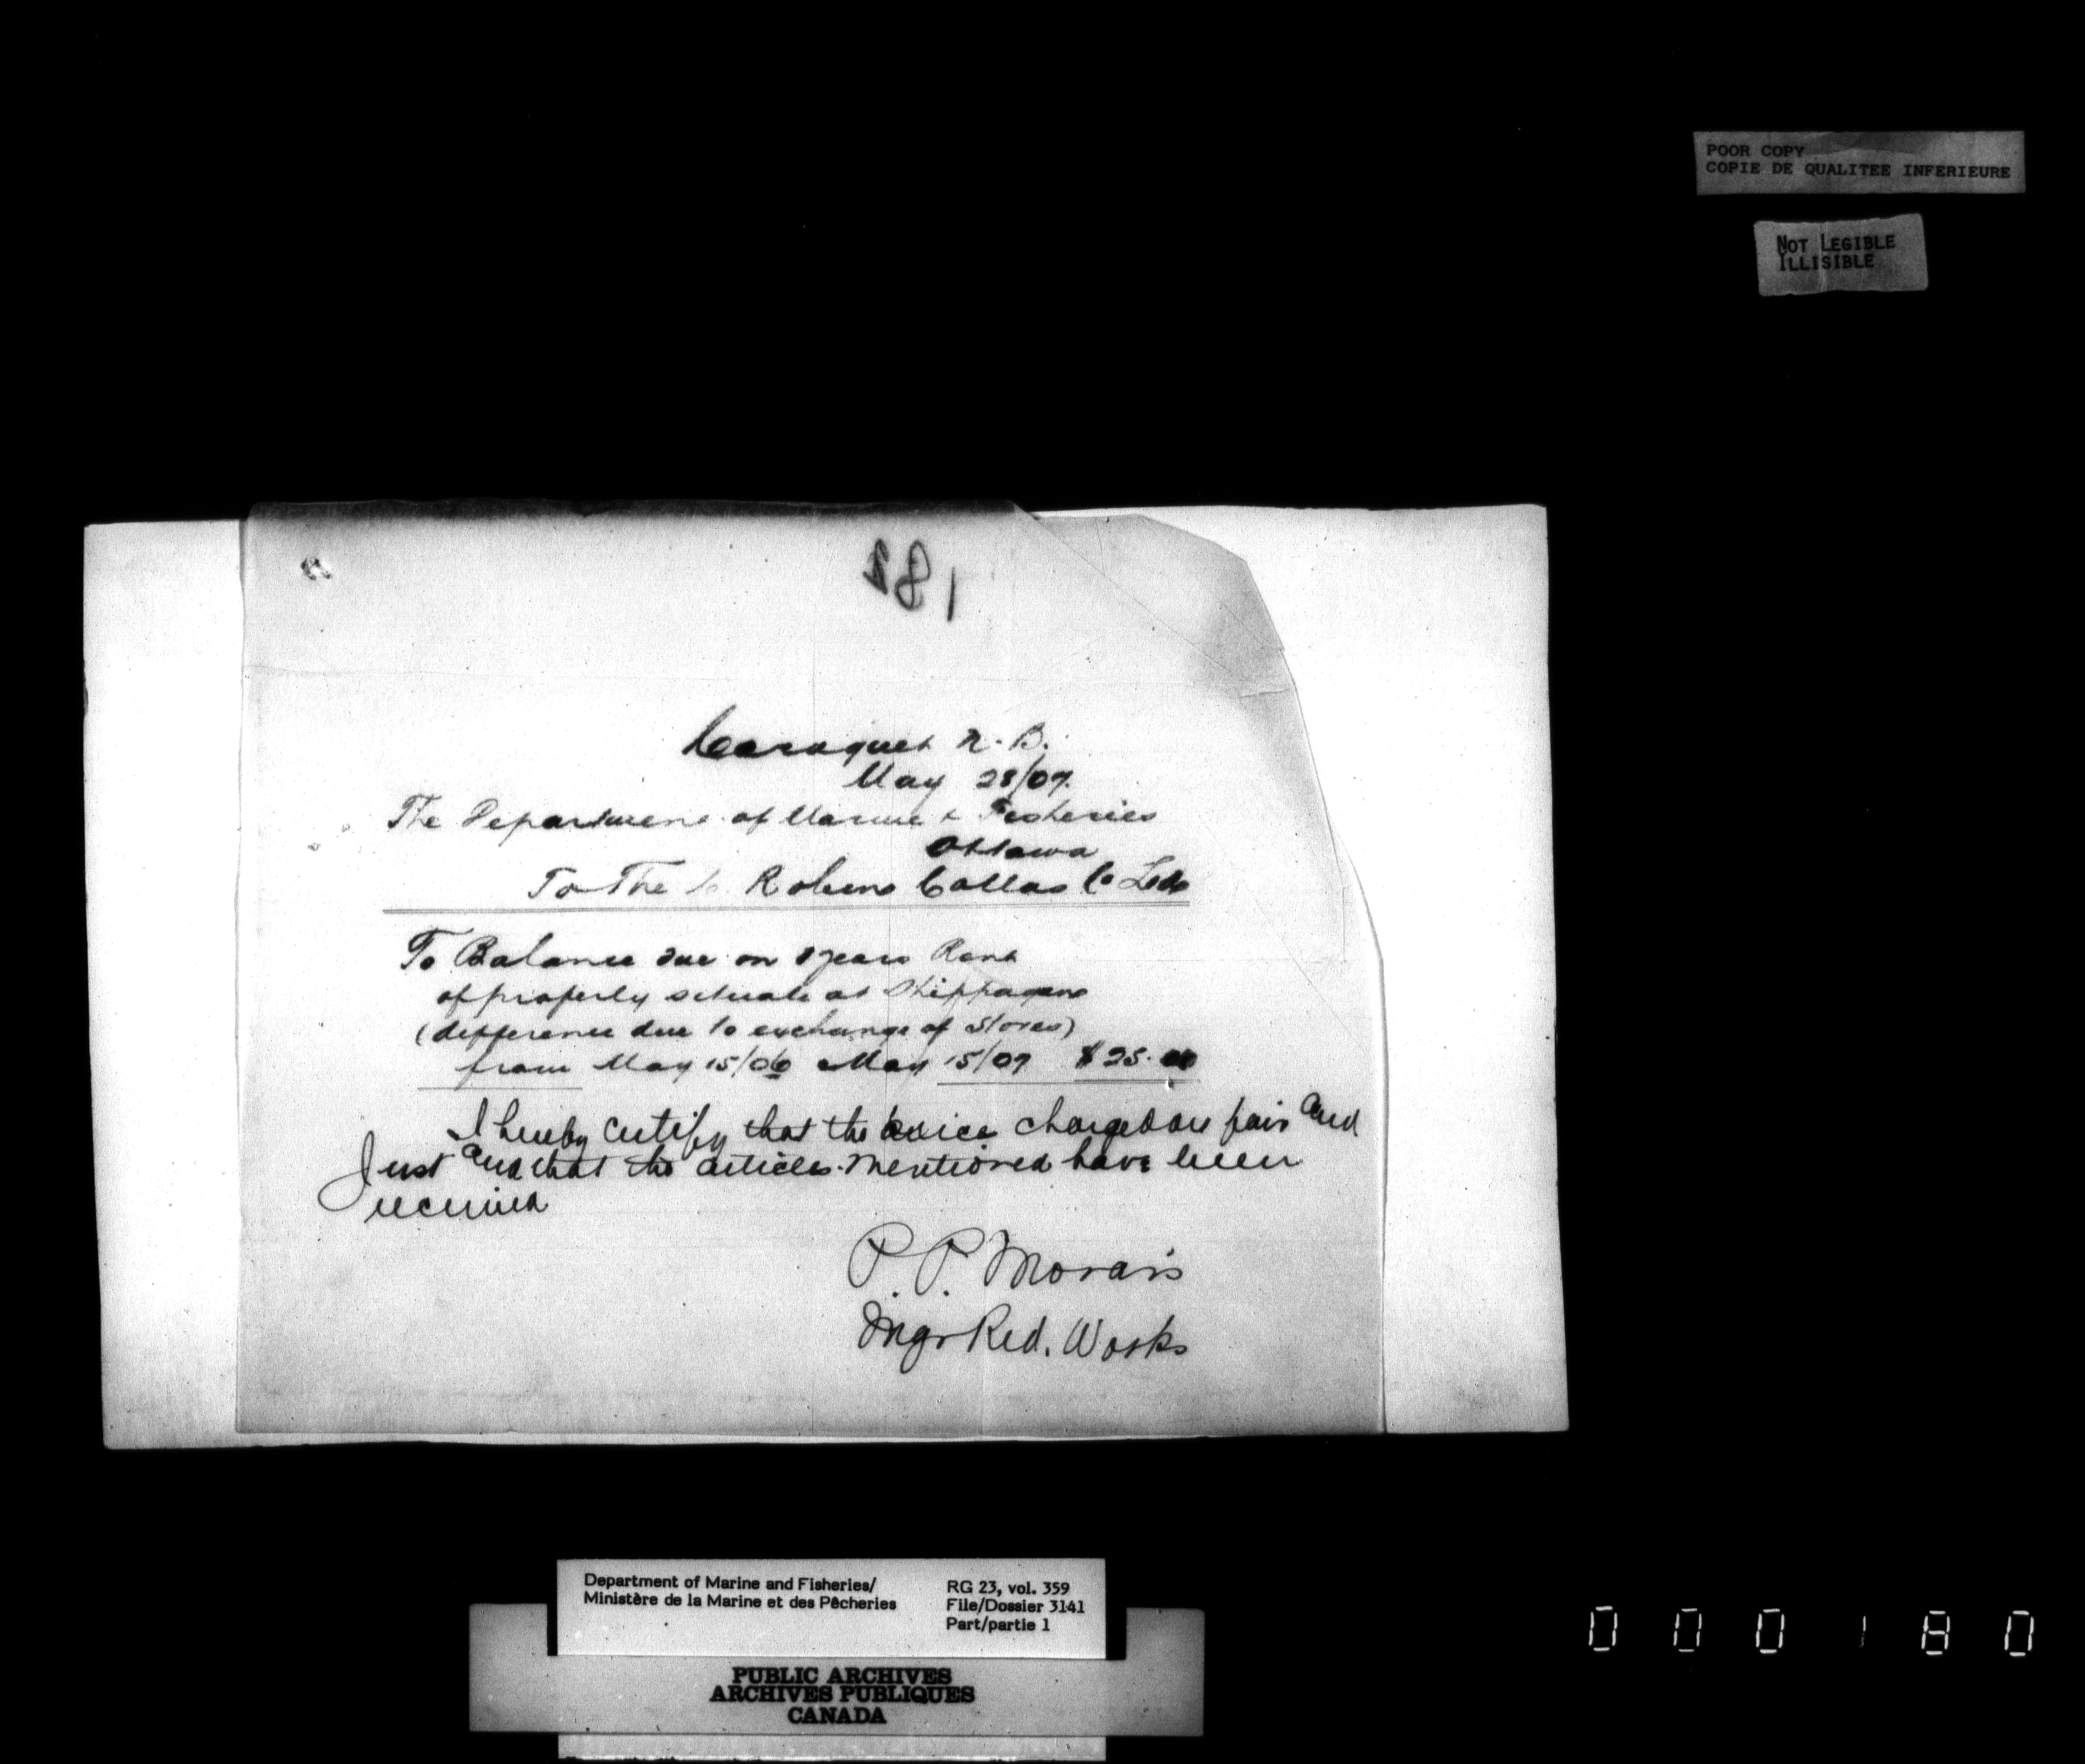 POOR COPY
COPIE DE QUALITEE INFERIEURE
NOT LEGIBLE
ILLISIBLE
181
Caraquet N. B.
May 28/07.
The Department of Marine & Fisheries
Ottawa
To The C. Robins Collas Co Ltd
To Balance due on years Rent
of property situate at Shippagan
(difference due to exchange of Stores)
from May 15/06 May 15/07 $25.00
I hereby certify that the price charged are fair and
Just and that the articles mentioned have been
received
P. P. Morais
Mgr Red. Works
Department of Marine and Fisheries/
Ministère de la Marine et des Pêcheries
RG 23, vol. 359
File/Dossier 3141
Part/partie 1
PUBLIC ARCHIVES
ARCHIVES PUBLIQUES
CANADA
000180